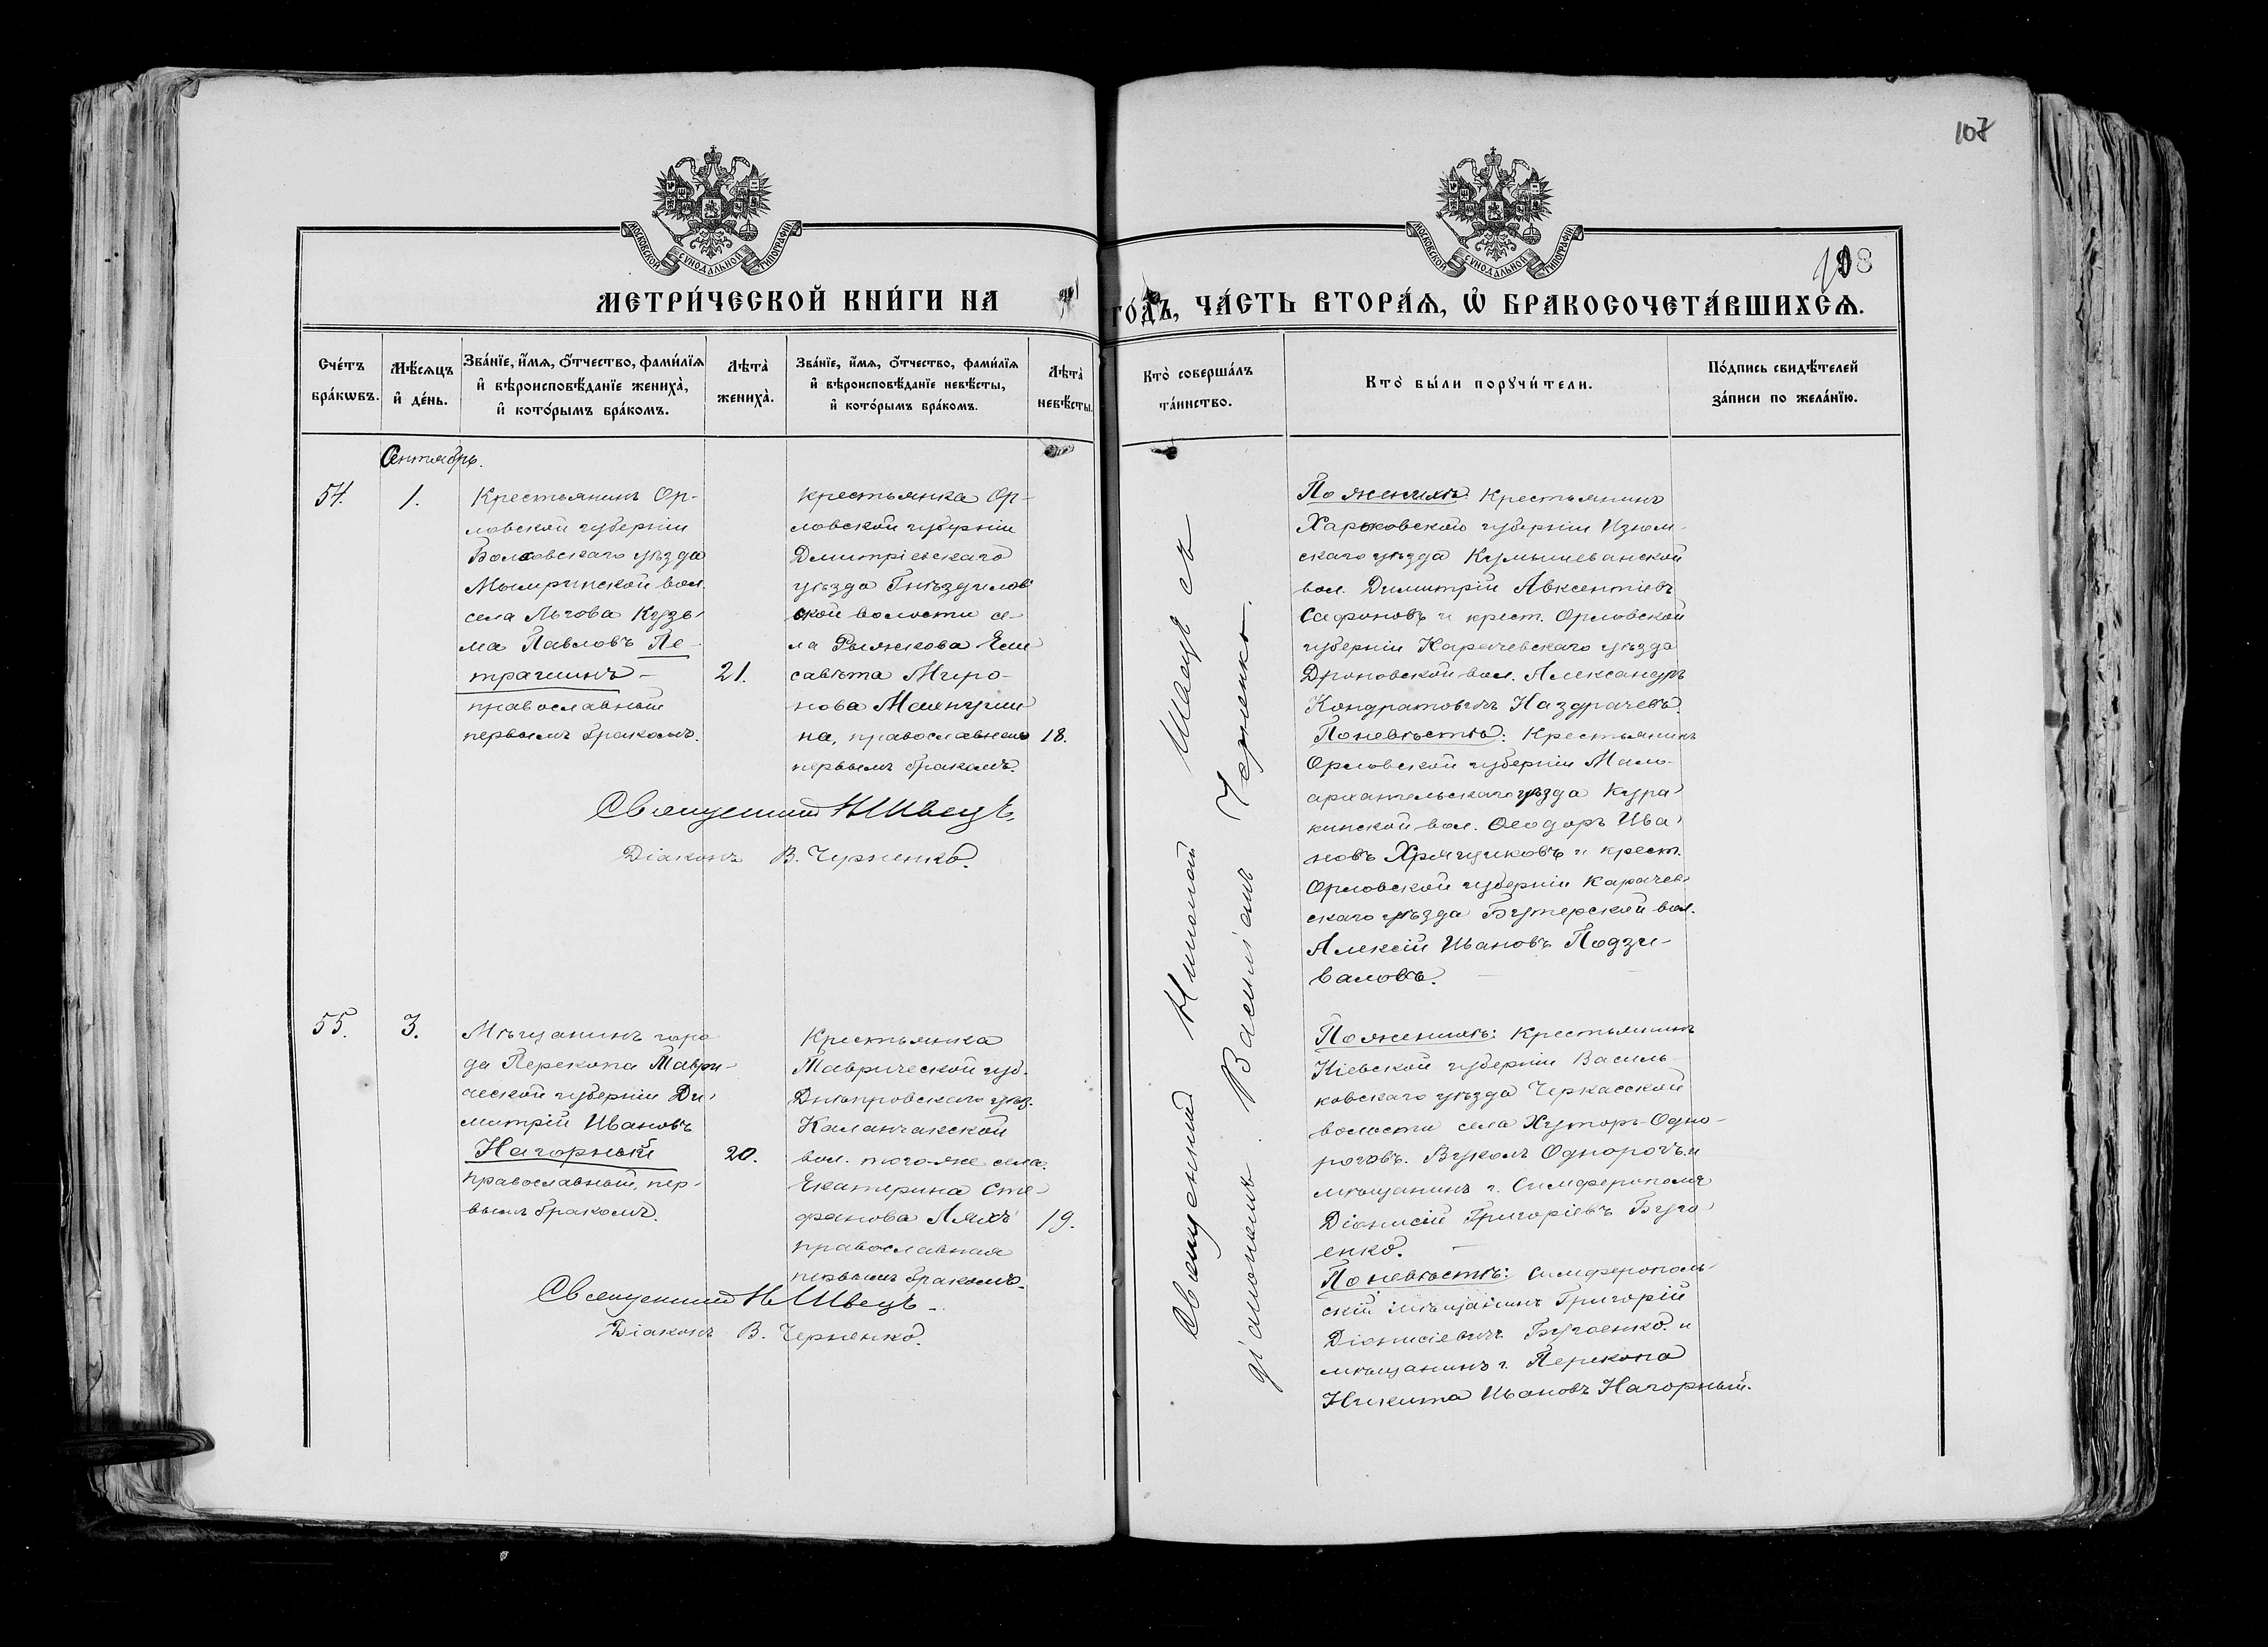 107
108
МОСКОВСКОЙ СУНОДАЛЬНОЙ ТИПОГРАФІИ
МОСКОВСКОЙ СУНОДАЛЬНОЙ ТИПОГРАФІИ
МЕТРИ́ЧЕСКОЙ КНИ́ГИ НА
ГО́ДЪ, ЧА́СТЬ ВТОРА́Ѧ, Ѡ҆ БРАКОСОЧЕТА́ВШИХСѦ.
Сче́тъ
бра́кѡвъ.
Мѣ́сѧцъ
и҆ де́нь.
Зва́нїе, и҆́мѧ, ѻ҆́тчество, фами́лїѧ
и҆ вѣроисповѣ́данїе жениха̀,
и҆ кото́рымъ бра́комъ.
Лѣта̀
жениха̀.
Зва́нїе, и҆́мѧ, ѻ҆́тчество, фами́лїѧ
и҆ вѣроисповѣ́данїе невѣ́сты,
и҆ кото́рымъ бра́комъ.
Лѣта̀
невѣ́сты.
Кто̀ соверша́лъ
та́инство.
Кто̀ бы́ли порꙋчи́тели.
По́дпись свидѣ́телей
за́писи по жела́нїю.
Сентябрь.
54.
1.
Крестьянинъ Ор-
ловской губерніи
Болховскаго уѣзда
Мымринской вол.
села Льгова Кузь-
ма Павловъ Пе-
трашинъ -
православный
первымъ бракомъ.
21.
Крестьянка Ор-
ловской губерніи
Дмитріевскаго
уѣзда Гнѣздилов
ской волости се-
ла Рыжкова Ели
савѣта Миро-
нова
на, православная
первымъ бракомъ.
18.
Священникъ Н Швецъ.
Діаконъ В. Черненко.
Священникъ Николай Швецъ съ
діакономъ Василіемъ Черненко.
По женихѣ: Крестьянинъ
Харьковской губерніи Изюм-
скаго уѣзда
вол. Димитрій Авксентіевъ
Сафоновъ и крест. Орловской
губерніи Карачевскаго уѣзда
Дроновской вол. Александръ
Кондратовичъ Наздрачевъ.
По невѣстѣ: Крестьянинъ
Орловской губерніи Мало-
архангельскаго уѣзда Кура-
кинской вол. Ѳеодоръ Ива-
новъ Хрящиковъ и крест.
Орловской губерніи Карачев-
скаго уѣзда Бутерской вол.
Алексій Ивановъ Подзи-
валовъ.
55.
3.
Мѣщанинъ горо
да Перекопа Таври-
ческой губерніи Ди-
митрій Ивановъ
Нагорный
православный, пер-
вымъ бракомъ.
20.
Крестьянка
Таврической губ.
Днѣпровскаго уѣз.
Каланчакской
вол. того-же села.
Екатерина Сте-
фанова Ляхъ
православная
первымъ бракомъ.
19.
Священникъ Н Швецъ.
Діаконъ В. Черненко.
По женихѣ: Крестьянинъ
Кіевской губерніи Василь-
ковскаго уѣзда Черкасской
волости села Хуторъ-Одно-
роговъ. Вуколъ Однорогъ и
мѣщанинъ г. Симферополя
Діонисій Григоріевъ Буго-
енко.
По невѣстѣ: Симферополь-
скій мѣщанинъ Григорій
Діонисіевичъ Бугоенко. и
мѣщанинъ г. Перекопа
Никита Ивановъ Нагорный.